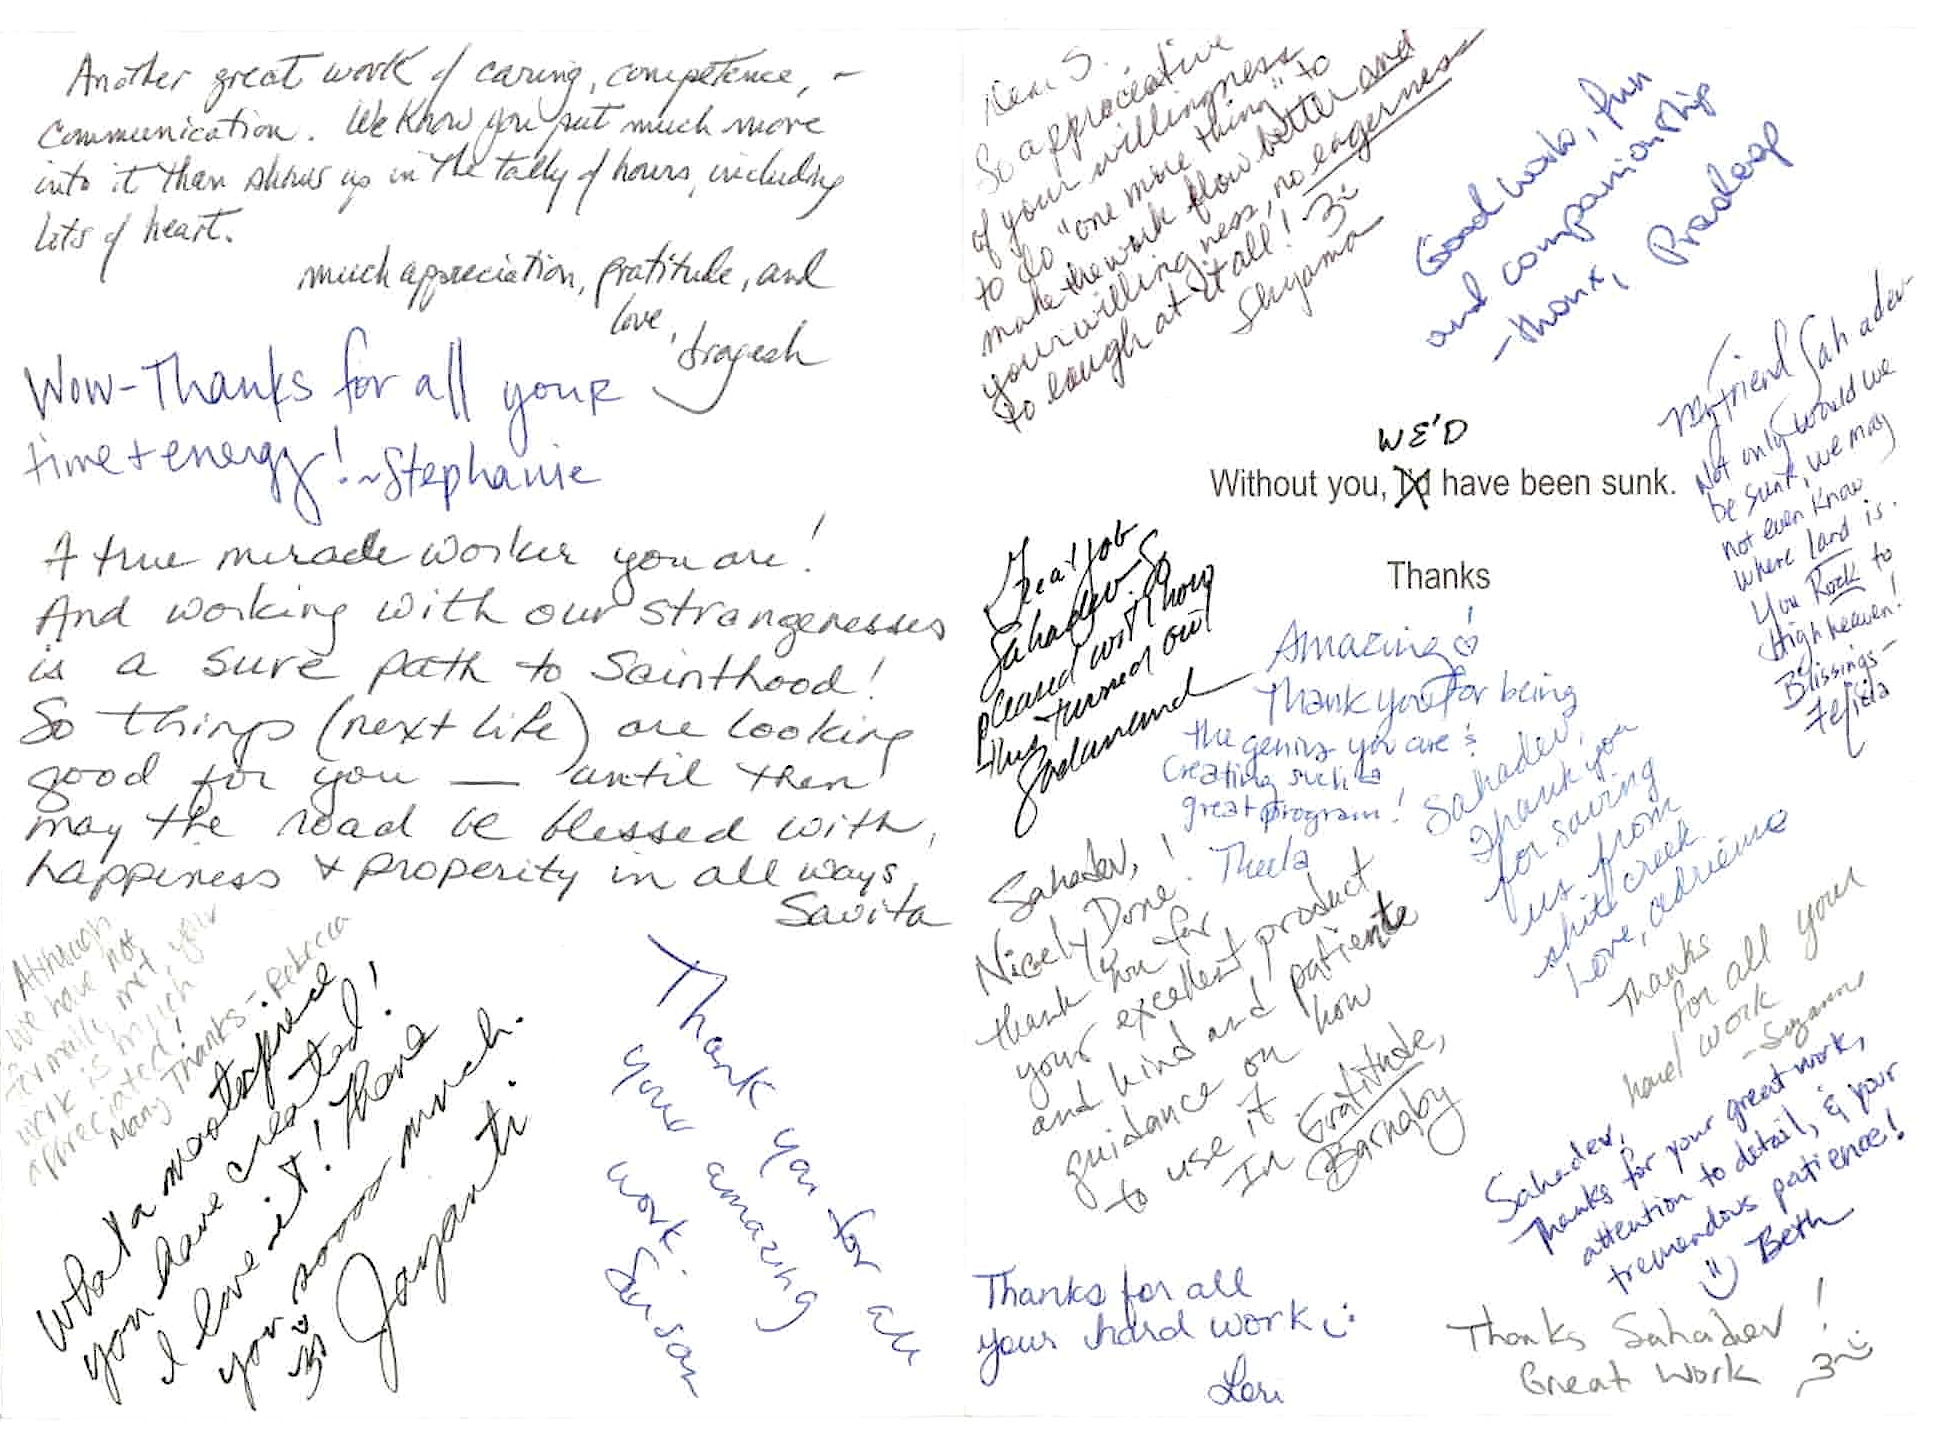 Another great work of caring, competence, -
communication. We know you put much more
into it than shows up in the tally of hours, including
lots of heart.
much appreciation, gratitude, and
love,
Wow-Thanks for all your
time + energy! ~Stephanie
A true miracle worker you are!
And working with our strangenesses
is a sure path to Sainthood!
So things (next life) are looking
good for you — until then
may the road be blessed with,
happiness & properity in all ways,
Savita
Although
we have not
formally met your
work is much
appreciated!
Many Thanks - Rebecca
What a masterpiece
you have created!
I love it! Thank
you soooo much.
Jayanti
Thank you for all
your amazing
work.
Susan
Dear S.
So appreciative
of your willingness
to do "one more thing" to
make the work flow better and
your willingness, no eagerness
to laugh at it all! ૐ
Shyama
Good work, fun
and companionship
-thanx, Pradeep
My friend Sahadev-
Not only would we
be sunk, we may
not even know
where land is.
You Rock to
High heaven!
Blissings-
Felicia
WE'D
Without you, I'd have been sunk.
Thanks
Great job
Sahadev- So
pleased with how
this turned out
Sadanand
Amazing!
Thank you for being
the genius you are &
Creating such a
great program!
Theela
Sahadev,
Thank you
for saving
us from
shit creek
Love, Adrienne
Sahadev,
Nicely Done!
thank you for
your excellent product
and kind and patiente
guidance on how
to use it
In Gratitude,
Barnaby
Thanks
for all your
hard work
-Suzanne
Sahadev,
Thanks for your great work,
attention to detail, & your
tremendous patience!
Beth
Thanks for all
your hard work
Lori
Thanks Sahadev!
Great Work